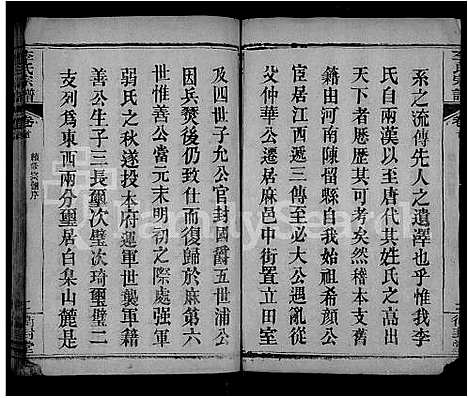 系之流傳先人之遺澤也乎惟我李
氏自兩漢以至唐代其姓氏之高出
天下者歷歷其可考矣然稽本支舊
籍由河南陳留縣自我始希顏公
宦居江西遞三傳至必大公遇亂從
父仲華公遷居麻邑中街置立田室
及四世子允公官封國爵五世浦公
因兵燹後乃徙仕而復歸於麻第六
世惟善公當元末明初之際處強軍
弱氏之秋遂投本府運軍世襲軍籍
善公生子三長璽次璧次琦璽璧二
支列為東西兩分璽居白杲山麓是
李氏宗譜
卷首
FamilySearch